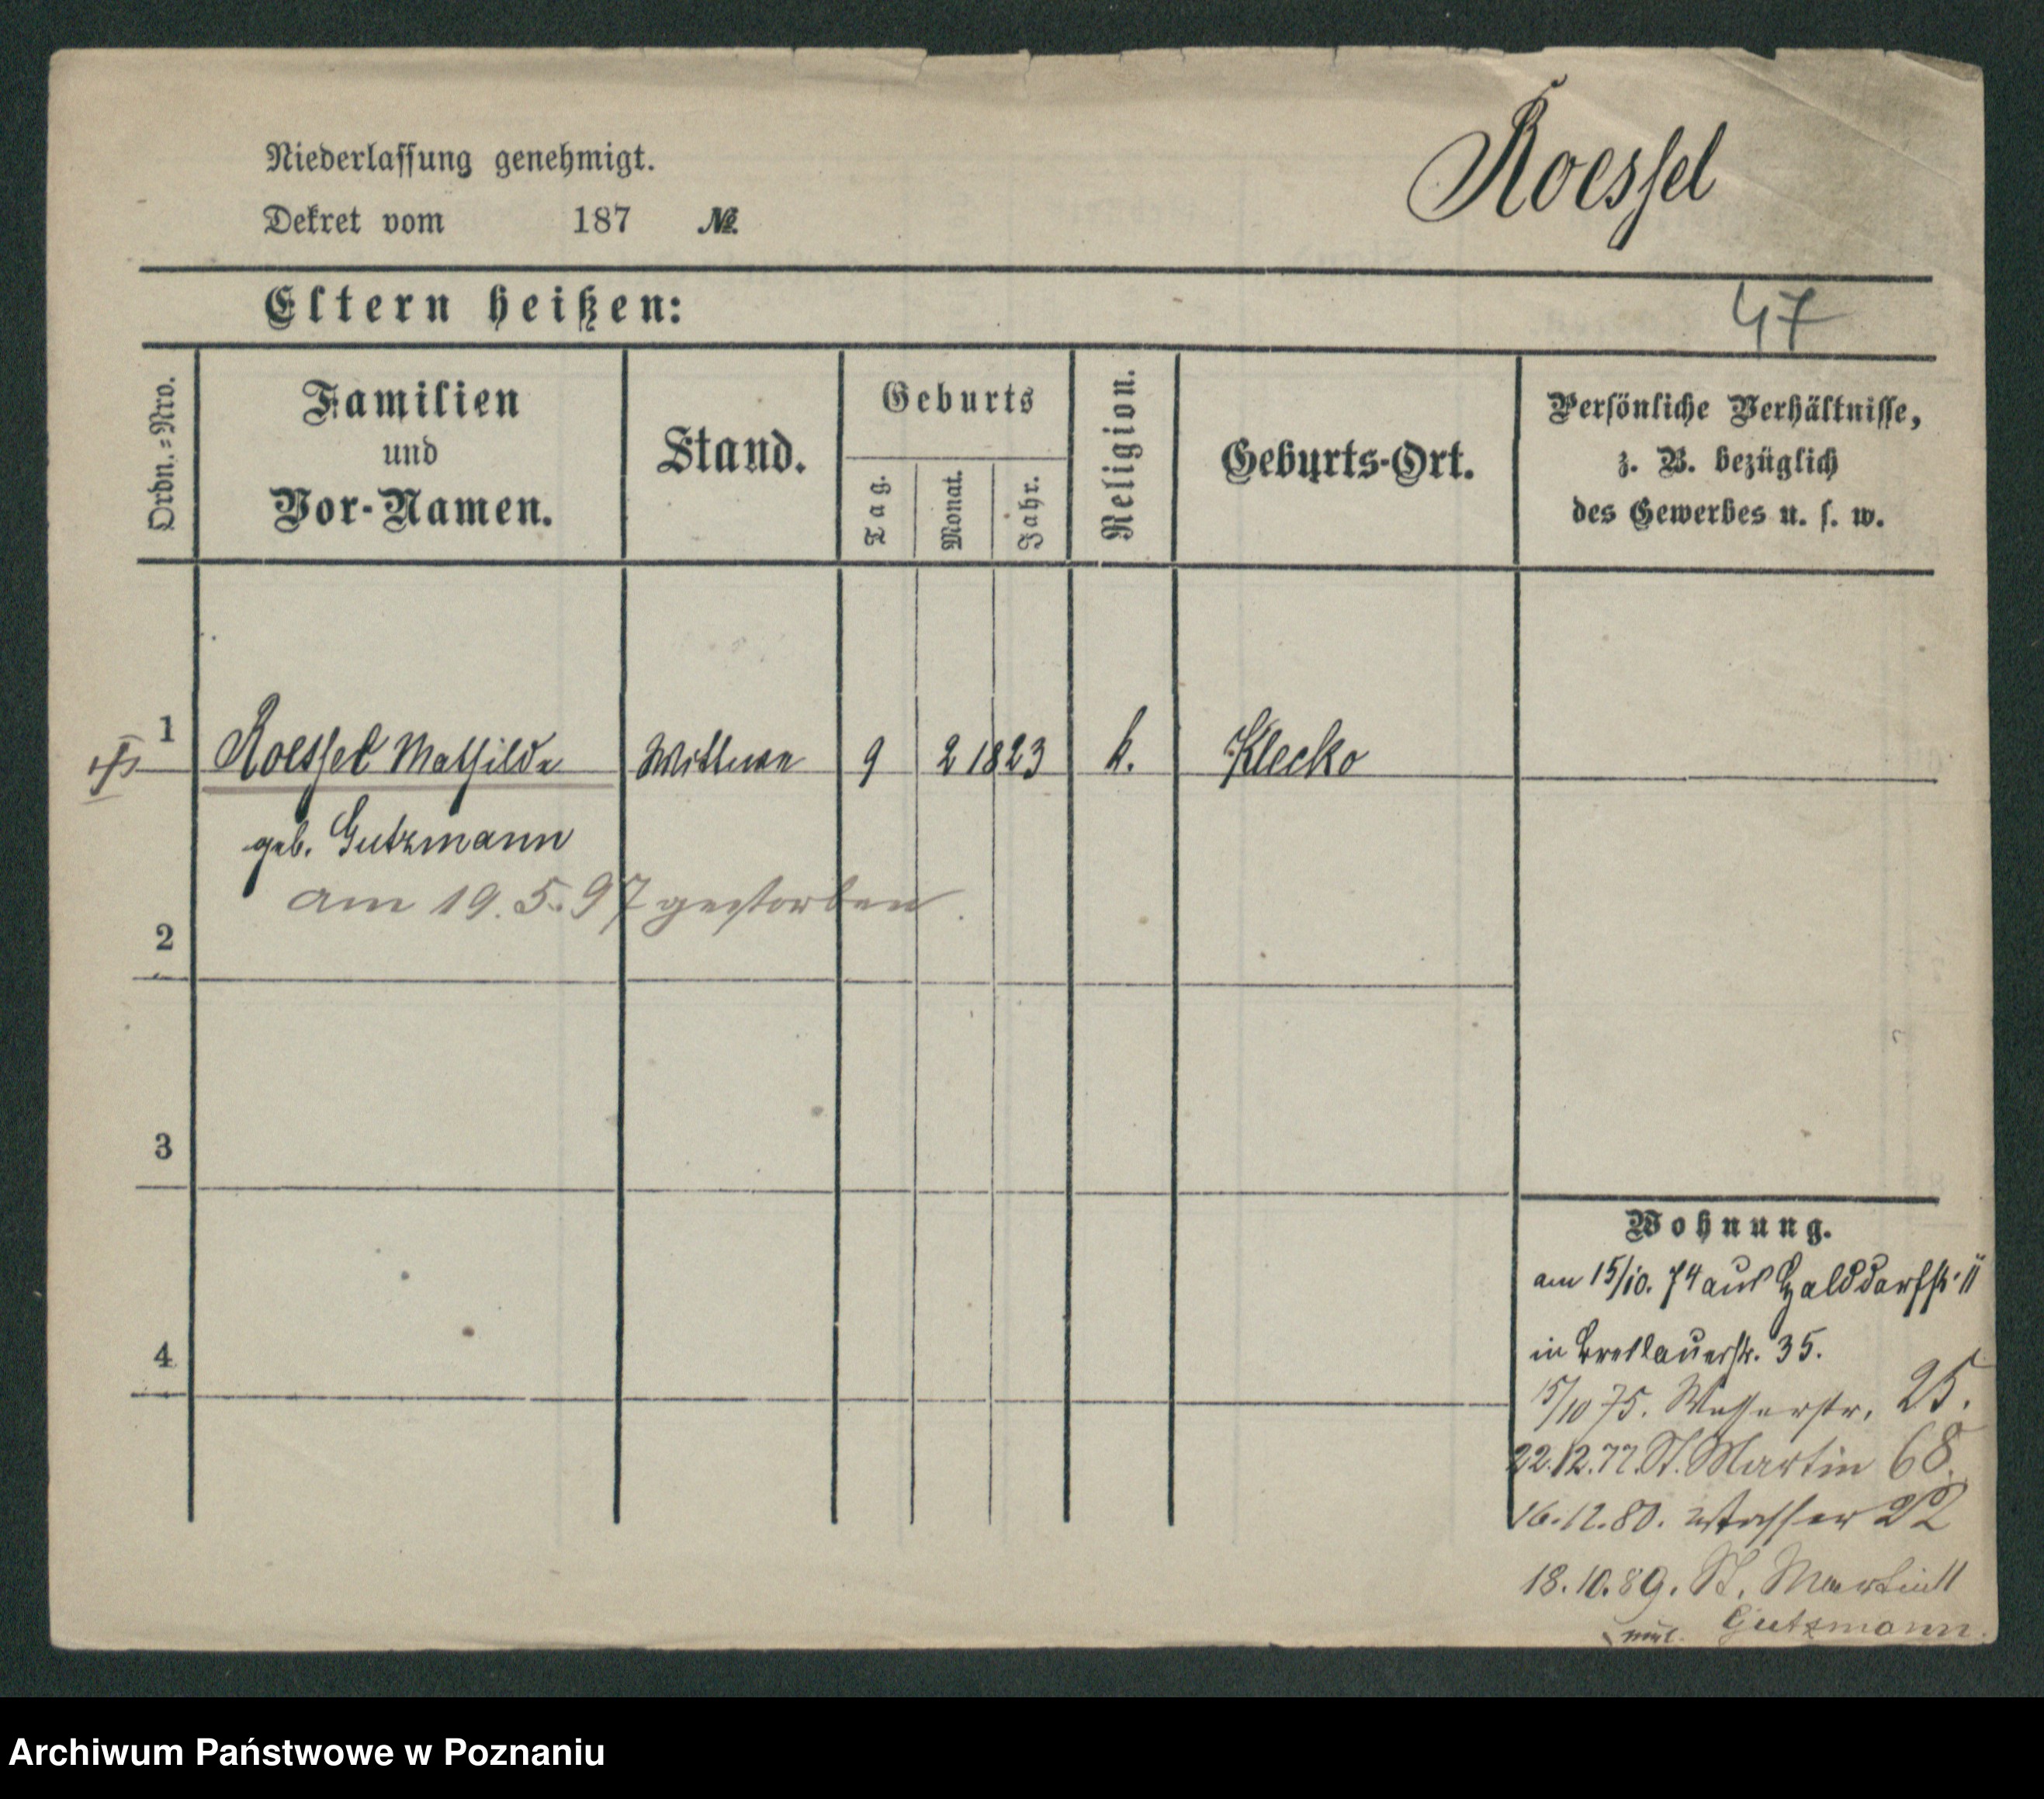 Roessel
Niederlassung genehmigt.
Dekret vom 187 №.
Eltern heißen:
47
Ordn.=Nro.
Familien
und
Vor-Namen.
Stand.
Geburts
Tag.
Monat.
Jahr.
Religion.
Geburts-Ort.
Persönliche Verhältnisse,
z. B. bezüglich
des Gewerbes u. s. w.
1 Roessel Mathilde Wittwe 9 2 1823 k. Klecko
geb. Gutzmann
am 19.5.97 gestorben.
2
3
4
Wohnung.
am 15/10. 74 aus Halddorfstr. 11
in Breslauerstr. 35.
15/10 75. Wasserstr. 25.
22.12.77. St. Martin 68.
16.12.80. Wasser 22
18.10.89. St. Martin 11
Gutzmann.
Archiwum Państwowe w Poznaniu